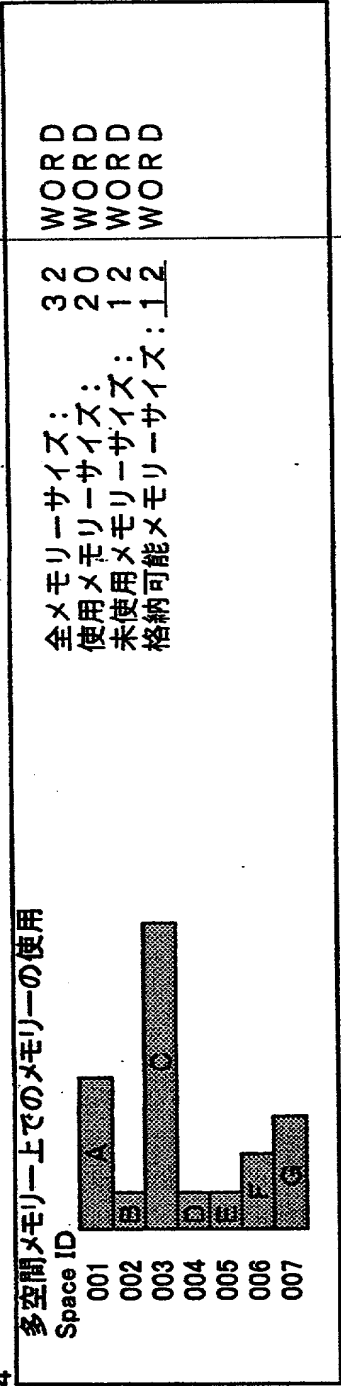 4
多空間メモリー上でのメモリーの使用
Space ID
001 A
002 B
003 C
004 D
005 E
006 F
007 G
全メモリーサイズ: 32 WORD
使用メモリーサイズ: 20 WORD
未使用メモリーサイズ: 12 WORD
格納可能メモリーサイズ: 12 WORD